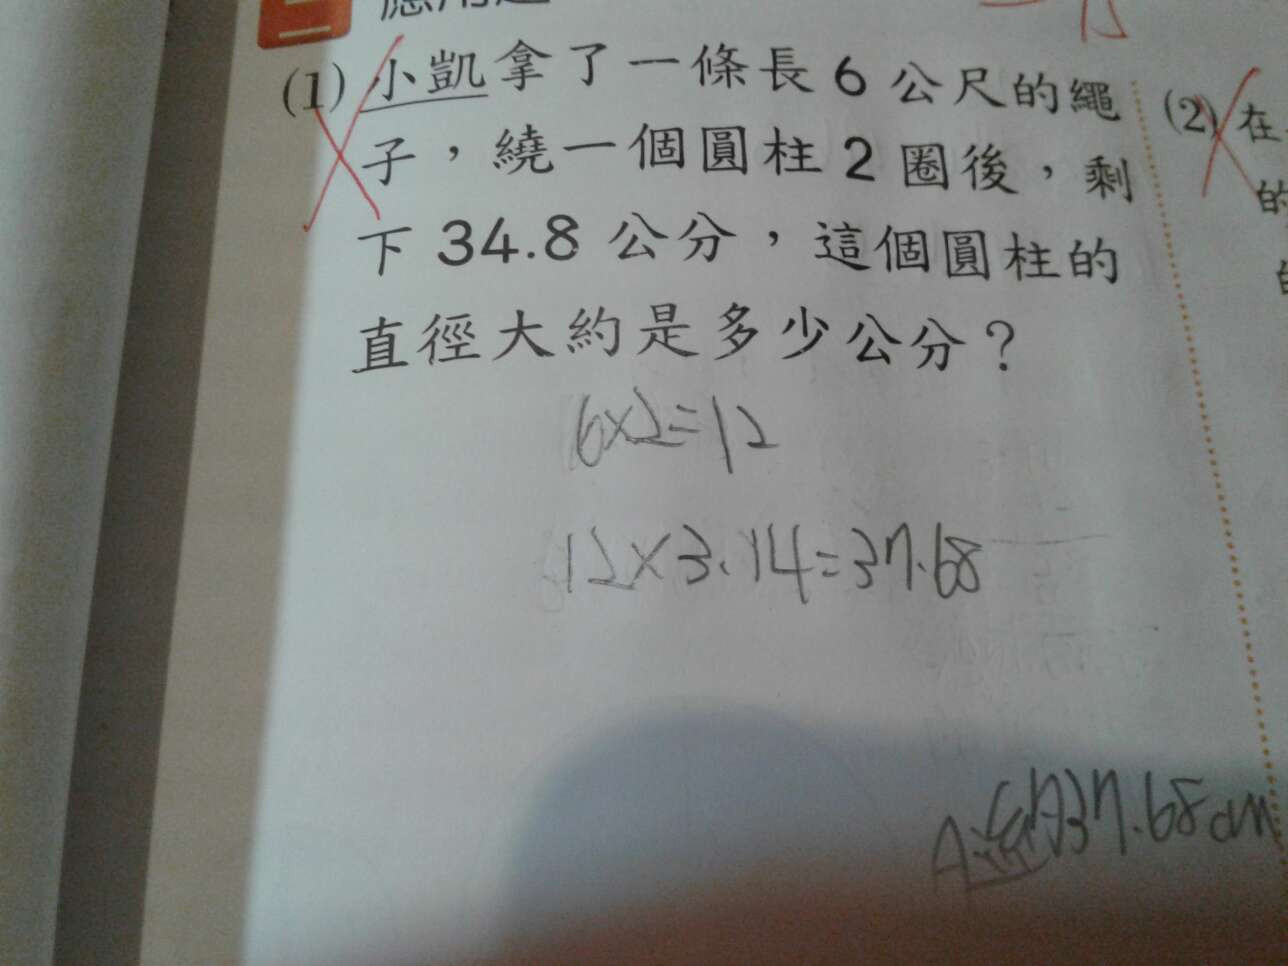 應用題
(1) 小凱拿了一條長 6 公尺的繩
子，繞一個圓柱 2 圈後，剩
下 34.8 公分，這個圓柱的
直徑大約是多少公分？
6×2=12
12×3.14=37.68
A:約37.68cm
(2) 在
的